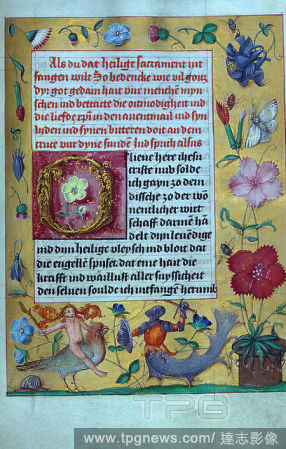 Als du dat heilige sacrament int
fangen wilt So bedencke wie vil goitz
dyr got gedain hait wur menche myn
schen ind betraite die oitmodigheit ind
die liefde xpi in den auentmail ind syn
lyden ind synen bitteren doit an dem
cruce wur dyne sunden Ind sprich alsus
O lieue here ihesu
criste nu solde
ich gayn zo dem
dissche zo der wo
nentlicher wirt
schaff darmen ha
delt dyn leuendige
ind dyn heilige vleysch ind bloit dat
die engelsse spyset. dat eine hait die
krafft ind waillust aller suyssicheit
den seluen soulde ich intfangen herumb
TPG
www.tpgnews.com / 達志影像